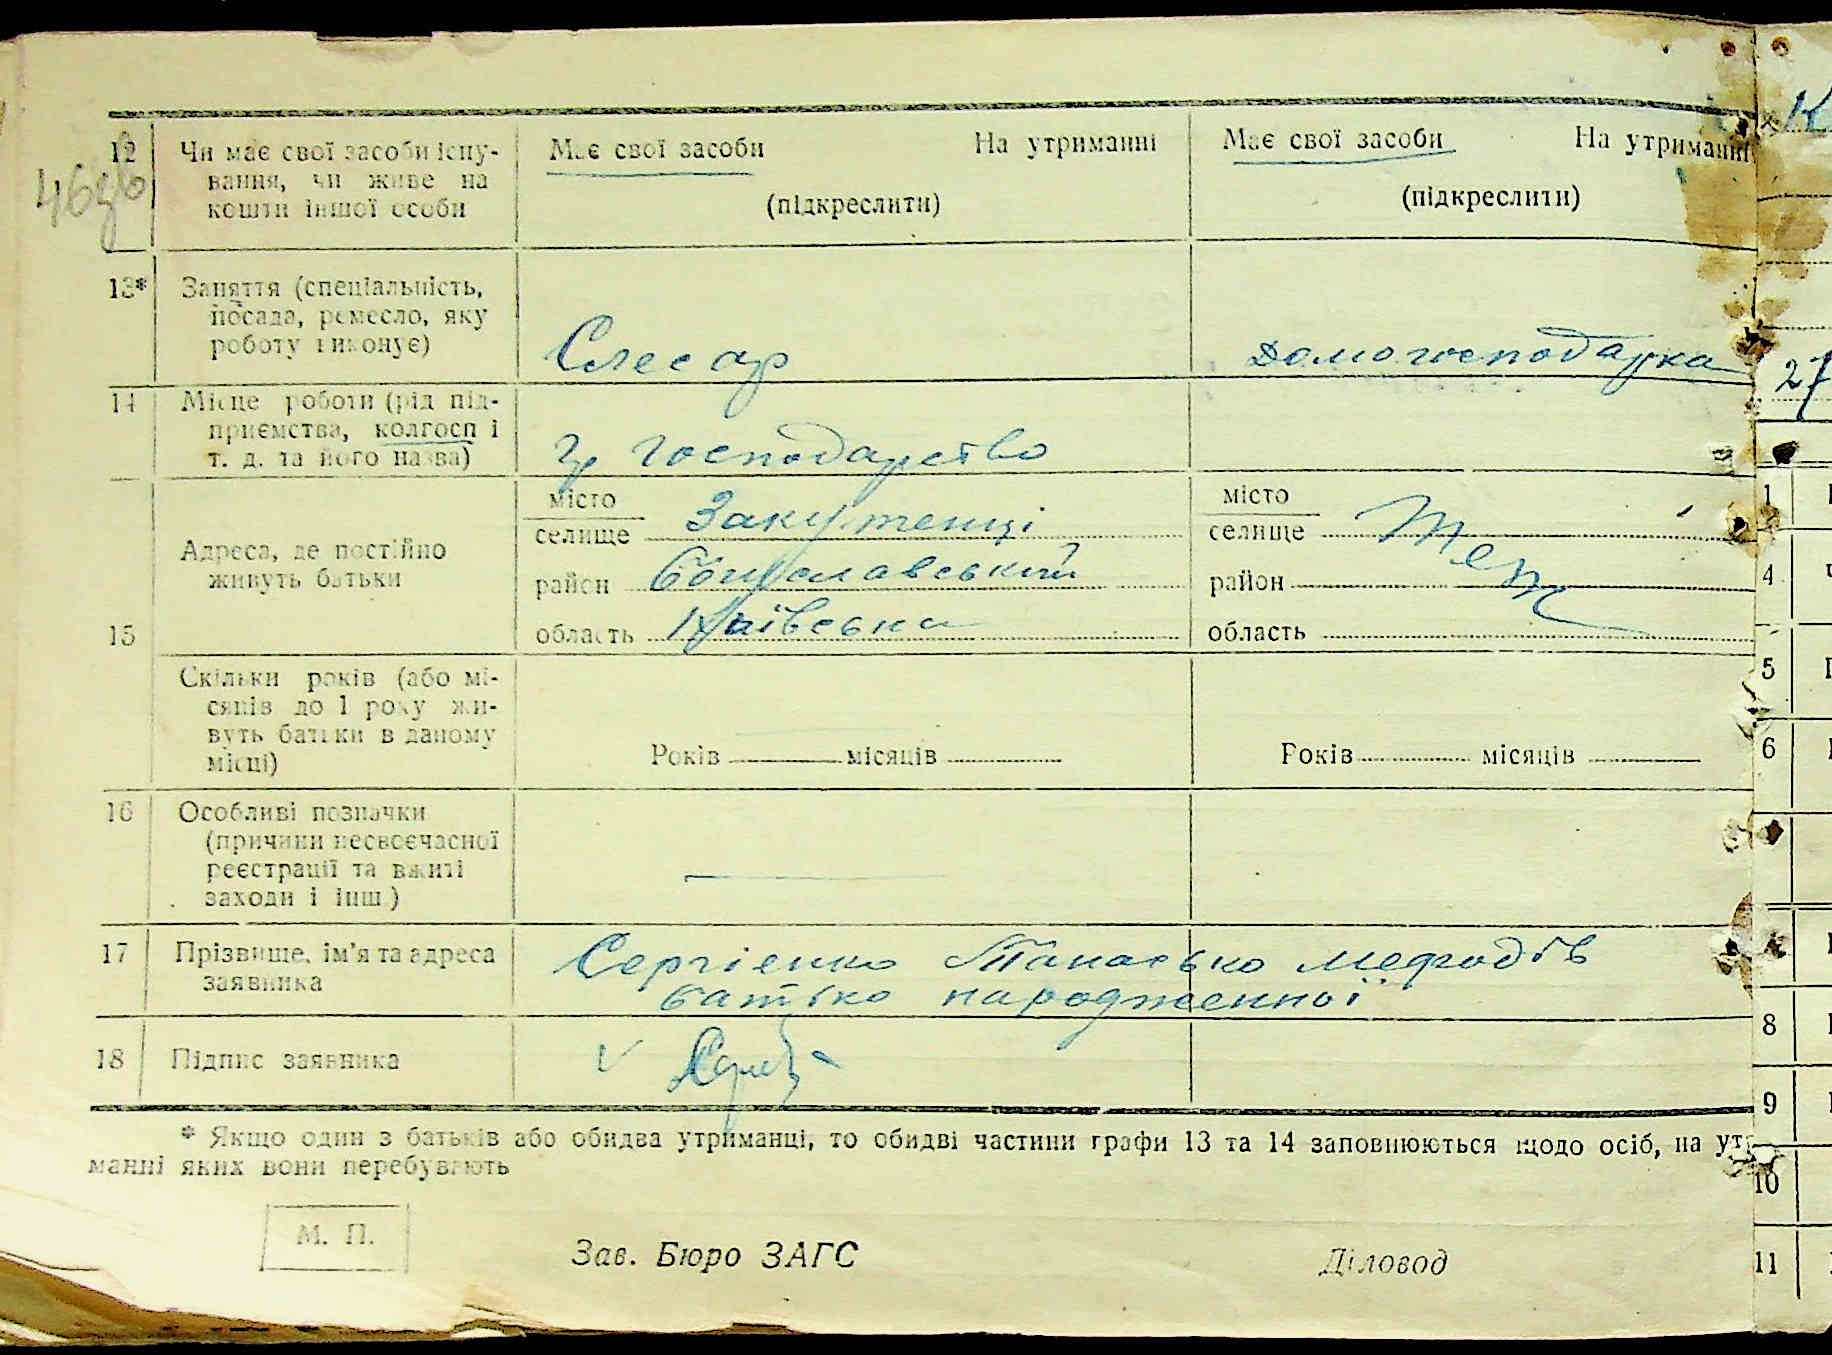 46зв
12 Чи має свої засоби існу- Має свої засоби На утриманні Має свої засоби На утриманні
вання, чи живе на
кошти іншої особи (підкреслити) (підкреслити)
13* Заняття (спеціальність,
посада, ремесло, яку
роботу виконує) Слесар домогосподарка
14 Місце роботи (рід під-
приємства, колгосп і
т. д. та його назва) Гр господарство
місто місто
селище Закутенці селище Теж
Адреса, де постійно
живуть батьки район Богуславський район
15 область Київська область
Скільки років (або мі-
сяців до 1 року жи-
вуть батьки в даному
місці) Років місяців Років місяців
16 Особливі позначки
(причини несвоєчасної
реєстрації та вжиті
заходи і інш.)
17 Прізвище, ім'я та адреса Сергієнко Панасько Мефодів
заявника батько народженної
18 Підпис заявника
* Якщо один з батьків або обидва утриманці, то обидві частини графи 13 та 14 заповнюються щодо осіб, на утри-
манні яких вони перебувають
М. П.
Зав. Бюро ЗАГС Діловод
К
27
1
4
5
6
8
9
10
11